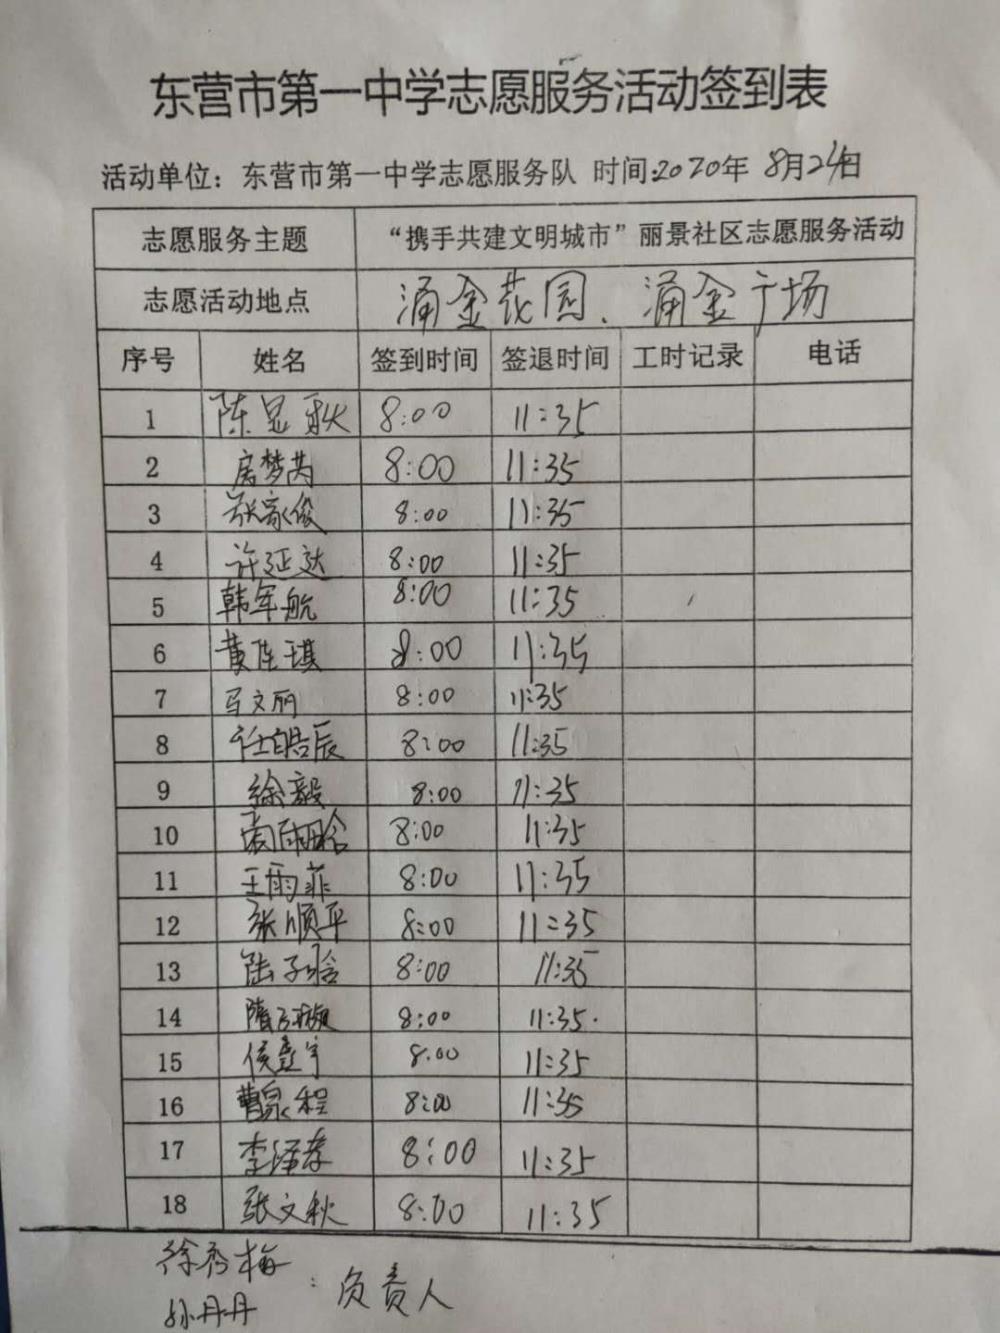 东营市第一中学志愿服务活动签到表
活动单位：东营市第一中学志愿服务队 时间:2020年 8月24日
志愿服务主题 “携手共建文明城市”丽景社区志愿服务活动
志愿活动地点 涌金花园、涌金广场
序号 姓名 签到时间 签退时间 工时记录 电话
1 陈显秋 8:00 11:35
2 房梦芮 8:00 11:35
3 张家俊 8:00 11:35
4 许延达 8:00 11:35
5 韩军航 8:00 11:35
6 黄陈琪 8:00 11:35
7 马文丽 8:00 11:35
8 任皓辰 8:00 11:35
9 徐毅 8:00 11:35
10 8:00 11:35
11 王雨菲 8:00 11:35
12 张顺平 8:00 11:35
13 陆子晗 8:00 11:35
14 8:00 11:35.
15 8:00 11:35
16 曹泉程 8:00 11:35
17 李泽孝 8:00 11:35
18 张文秋 8:00 11:35
徐秀梅
孙丹丹 : 负责人